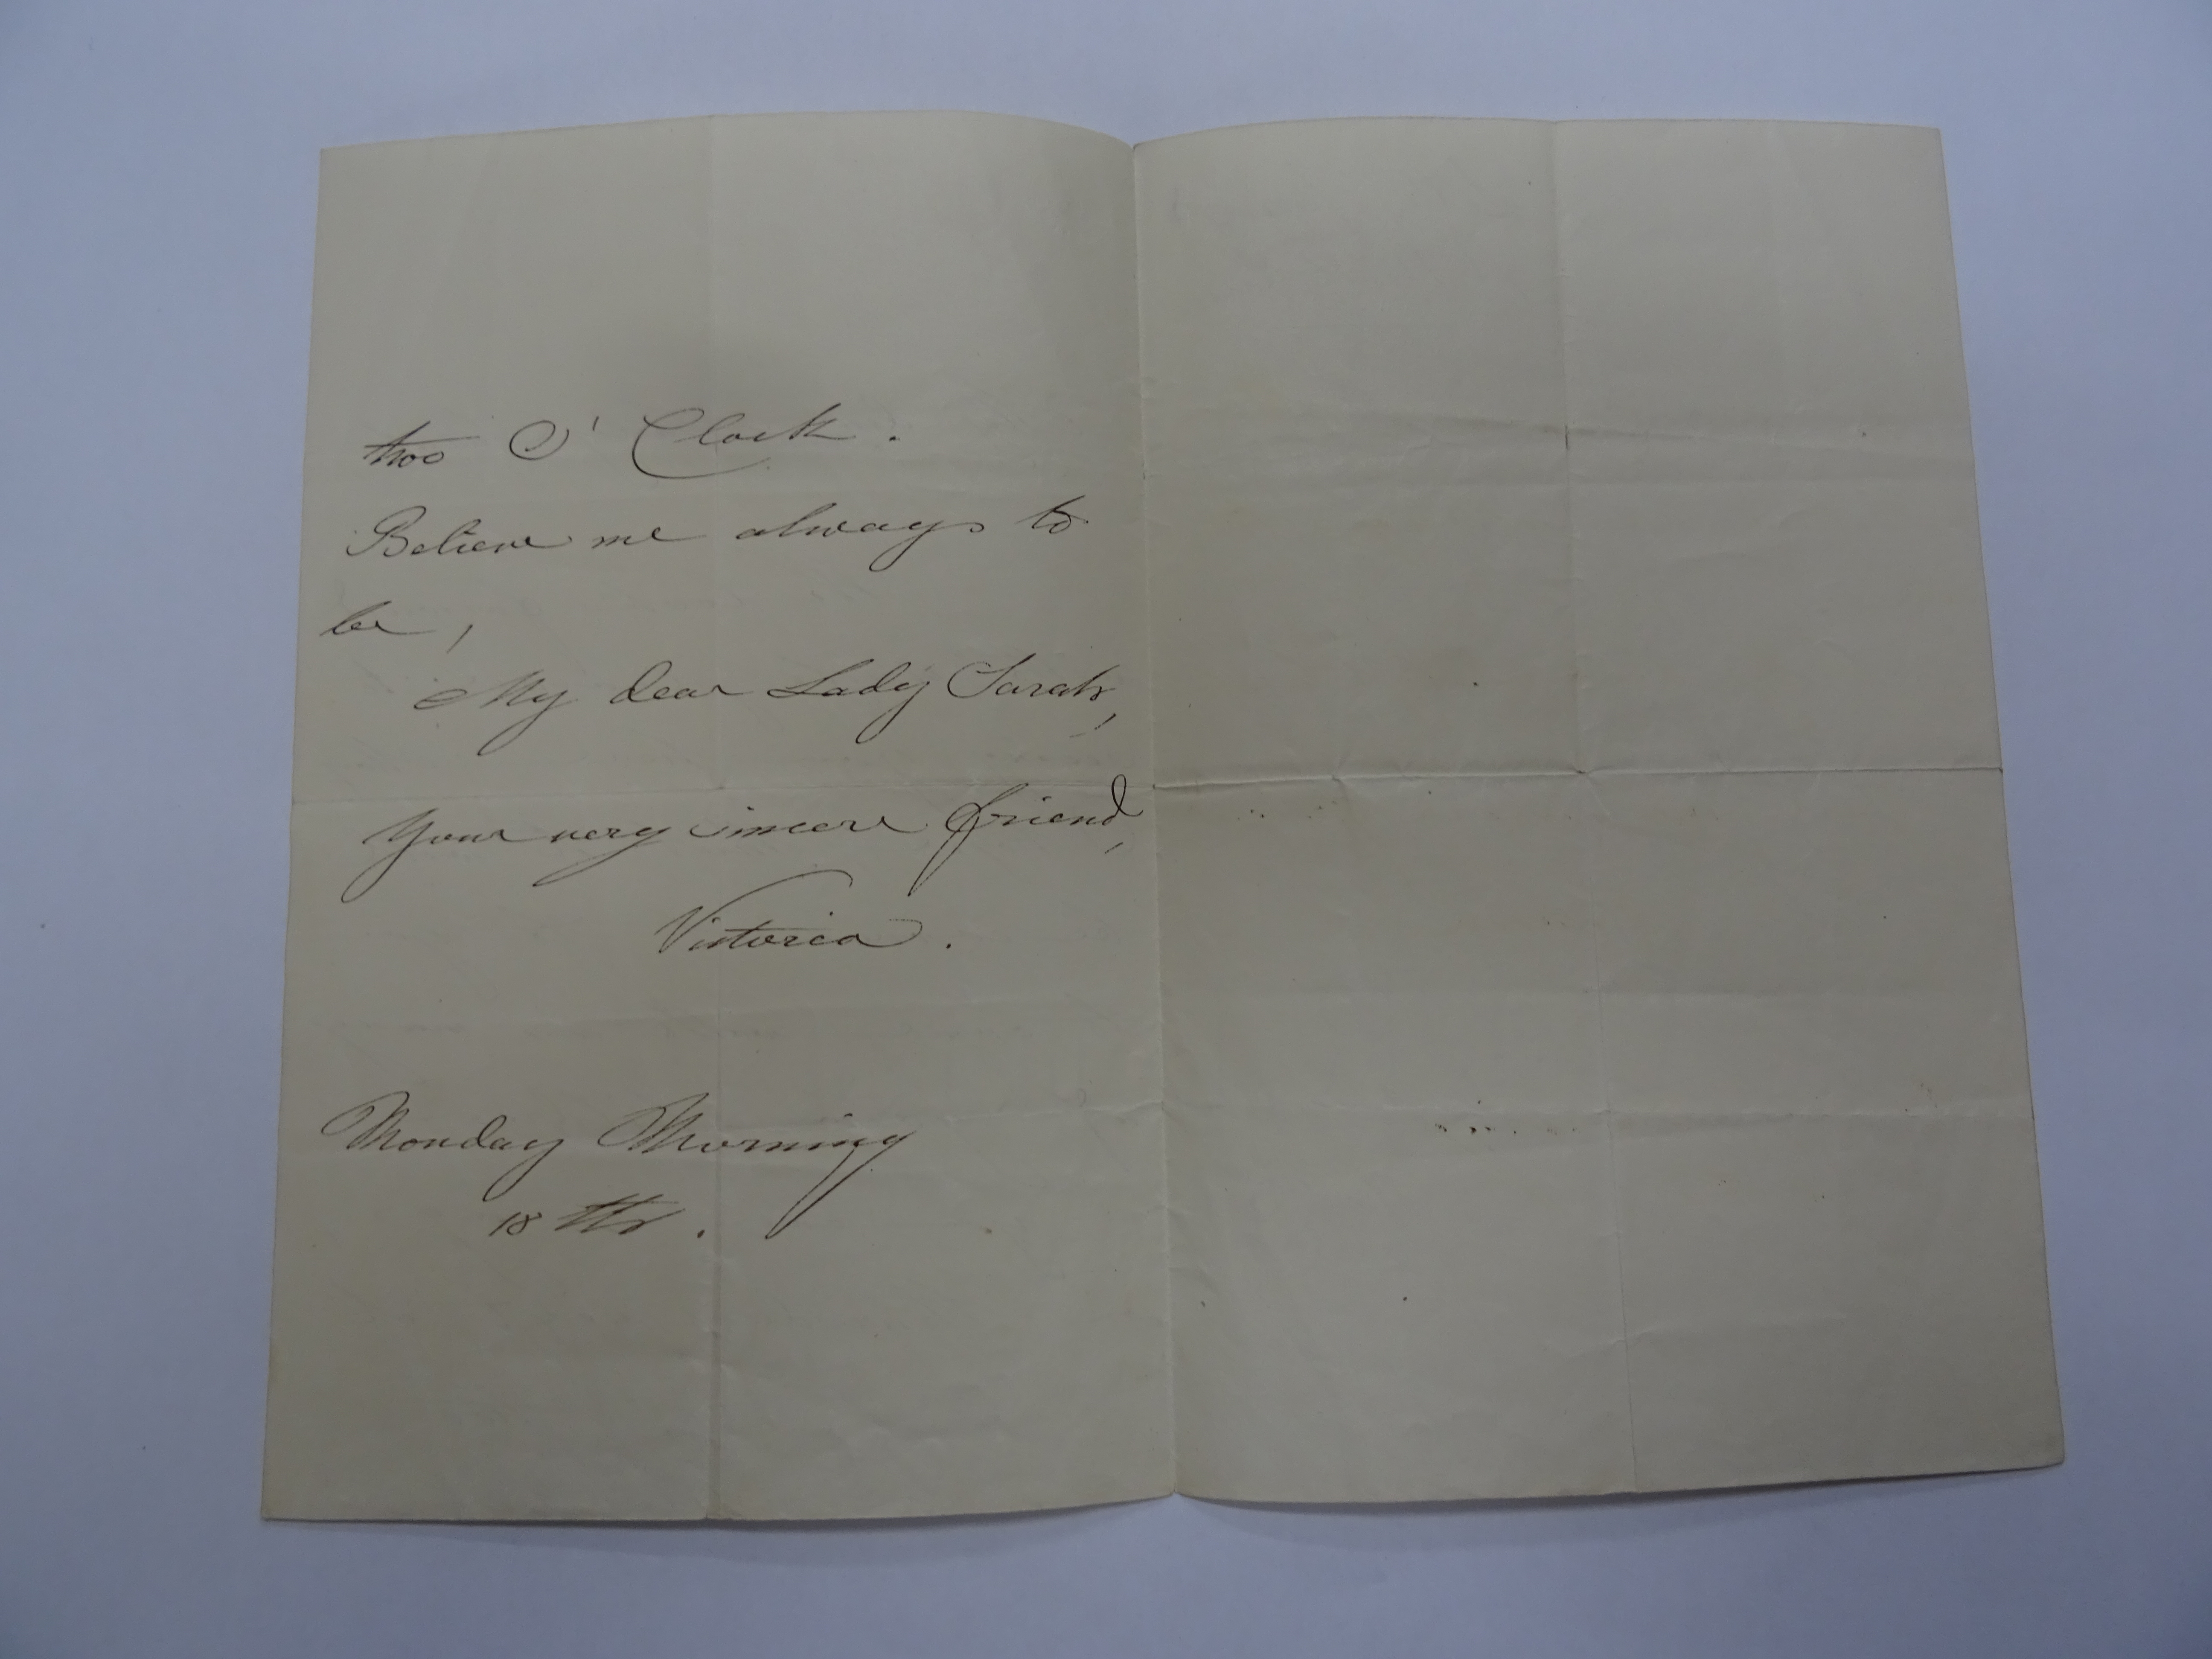 two O'Clock.
Believe me always to
be,
My dear Lady Sarah,
Your very sincere friend,
Victoria.
Monday Morning
18th.